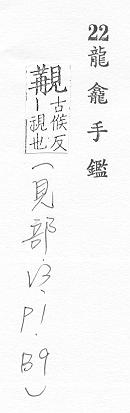 22 龍龕手鑑
覯古候反丨視也
(見部.V3.P1.B9)